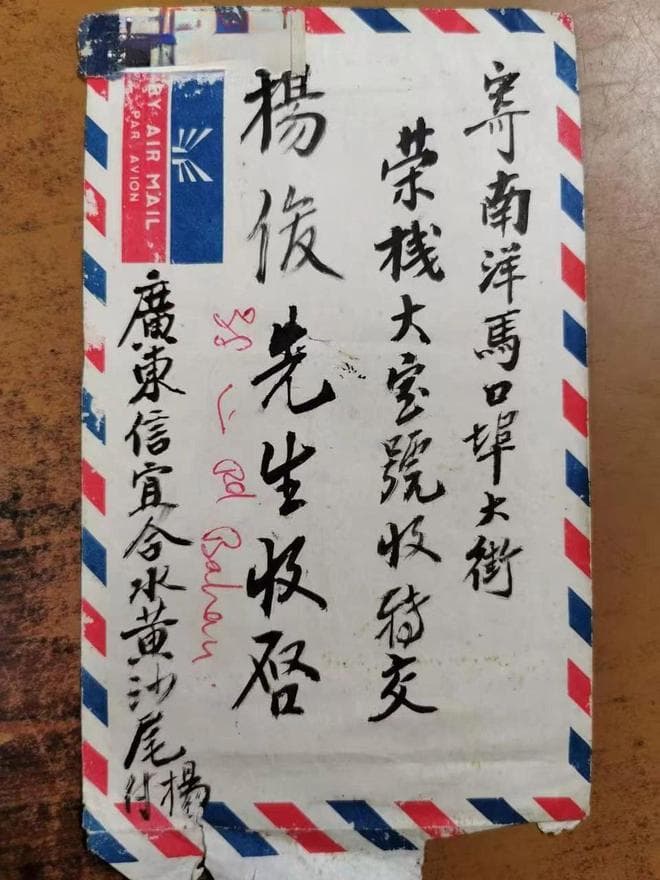 寄南洋馬口埠大街
荣栈大宝號收转交
楊俊先生收啓
廣東信宜合水黄沙尾
楊付
BY AIR MAIL
PAR AVION
38
Rd Bahau.